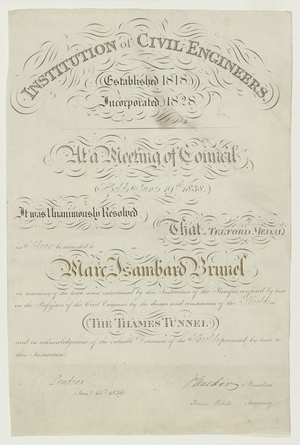 INSTITUTION of CIVIL ENGINEERS.
(Established 1818)
Incorporated 1828
At a Meeting of Council
Held June 19th 1838.
It was Unanimously Resolved
That a TELFORD MEDAL
in Silver be awarded to
Marc Isambard Brunel
in testimony of the high sense entertained by this Institution of the Benefits conferred by him
on the Profession of the Civil Engineer by the design and construction of the Shield at
(THE THAMES TUNNEL)
and in acknowledgement of the valuable Drawings of the Shield presented by him to
this Institution.
London
Jany 15th 1839
President
Thomas Secretary